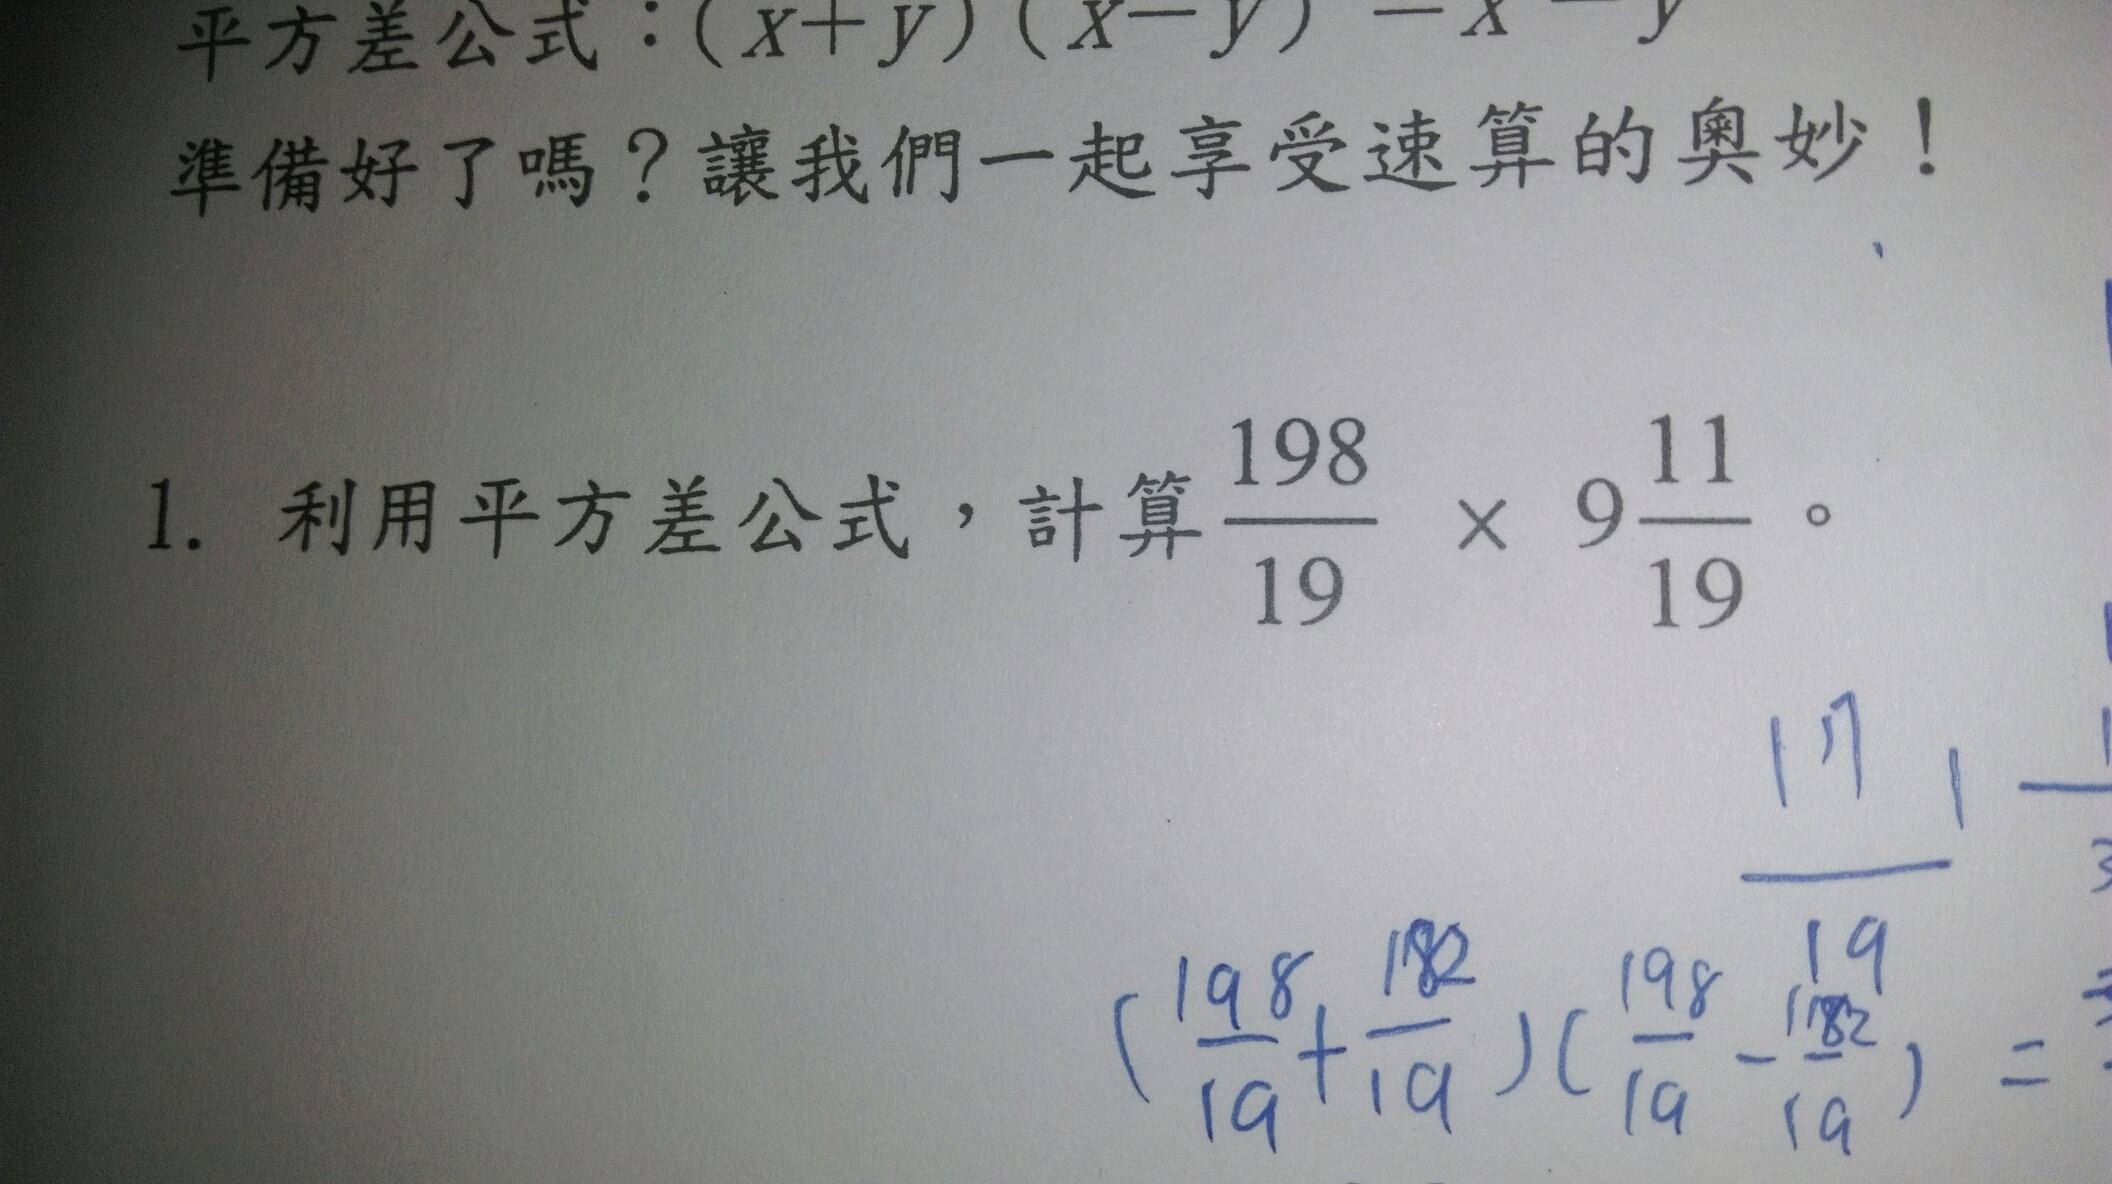 平方差公式：(x+y)(x−y)=x −y
準備好了嗎？讓我們一起享受速算的奧妙！
1. 利用平方差公式，計算 198/19 × 9 11/19。
19
(198/19+182/19)(198/19-182/19)=